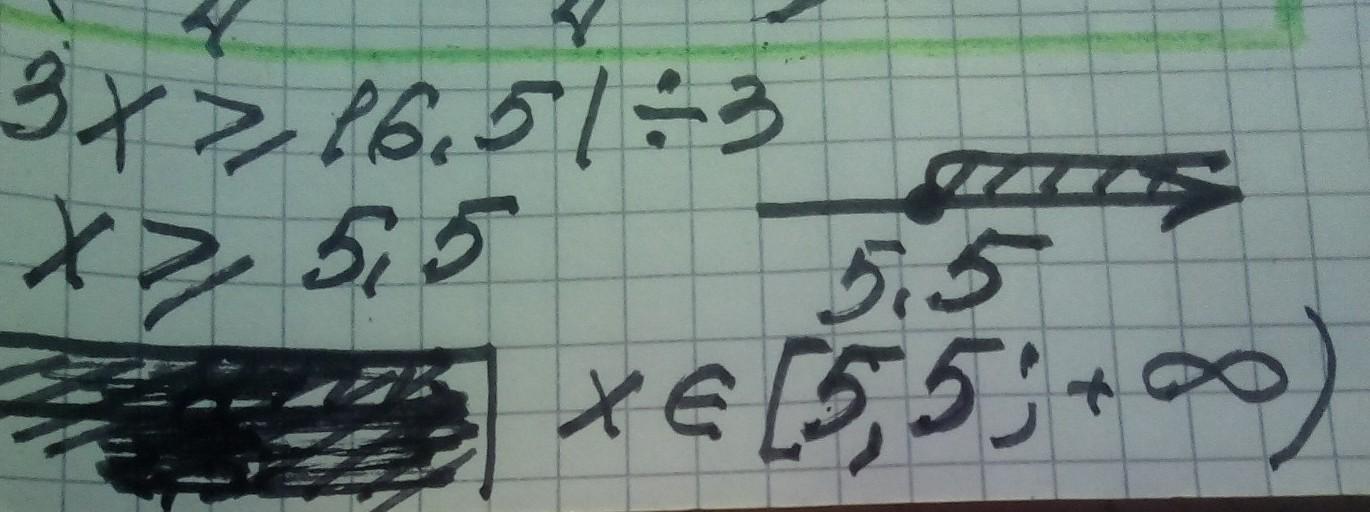 3x ≥ 16.5 | ÷3
x ≥ 5,5
5.5
x ∈ [5,5; + ∞)